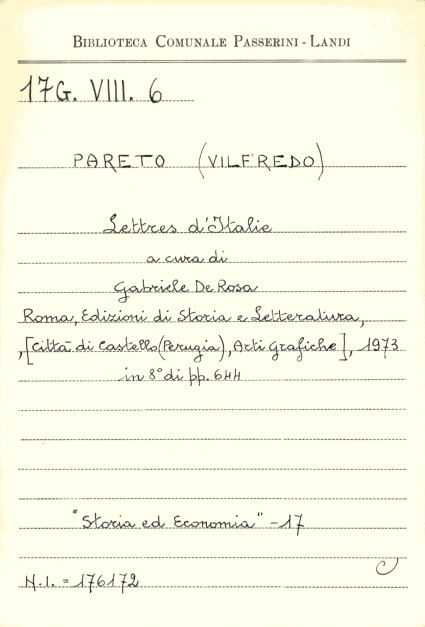 BIBLIOTECA COMUNALE PASSERINI - LANDI
17G. VIII. 6
PARETO (VILFREDO)
Lettres d'Italie
a cura di
Gabriele De Rosa
Roma, Edizioni di Storia e Letteratura,
,[Città di Castello (Perugia), Arti Grafiche], 1973
in 8° di pp. 644
"Storia ed Economia" - 17
N.I. = 176172